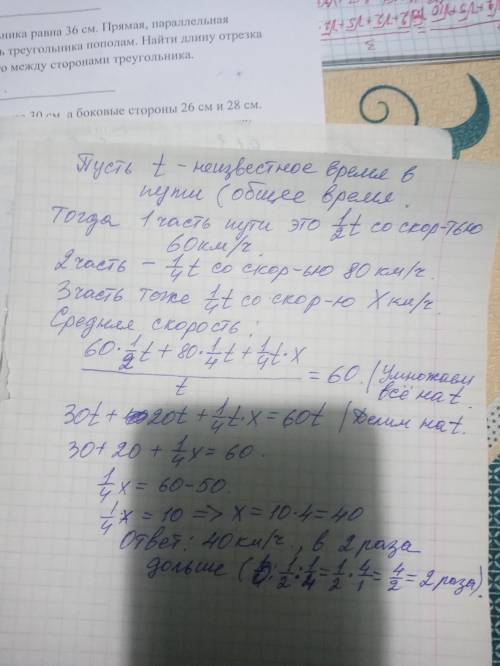 ника равна 36 см. Прямая, параллельная
треугольника пополам. Найти длину отрезка
между сторонами треугольника.
30 см, а боковые стороны 26 см и 28 см.
Пусть t - неизвестное время в
пути (общее время.
Тогда 1 часть пути это 1/2 t со скор-тью
60 км/ч.
2 часть - 1/4 t со скор-ью 80 км/ч.
3 часть тоже 1/4 t со скор-ю X км/ч.
Средняя скорость:
(60·1/2 t + 80·1/4 t + 1/4 t·x)/t = 60. | Умножаем
всё на t.
30t + 20t + 1/4 t·x = 60t | Делим на t.
30 + 20 + 1/4 x = 60.
1/4 x = 60-50.
1/4 x = 10 => x = 10·4 = 40
Ответ: 40 км/ч, в 2 раза
дольше (1/2 : 1/4 = 1/2 · 4/1 = 4/2 = 2 раза).